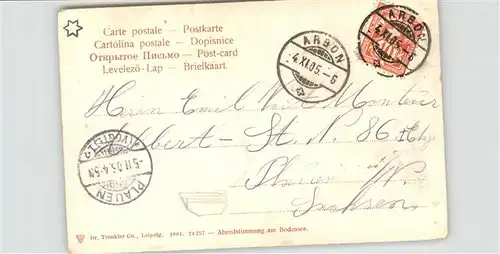 Carte postale — Postkarte
Cartolina postale — Dopisnice
Открытое Письмо — Post-card
Levelező-Lap — Briefkaart
ARBON
4.XI.05.-6
ARBON
4.XI.05.-6
Herrn Emil
Albert-St. N. 86
PLAUEN
(VOGTL.)
5.11.05.4-5N
Plauen i/V.
Sachsen.
Dr. Trenkler Co., Leipzig. 1904. 24257 — Abendstimmung am Bodensee.